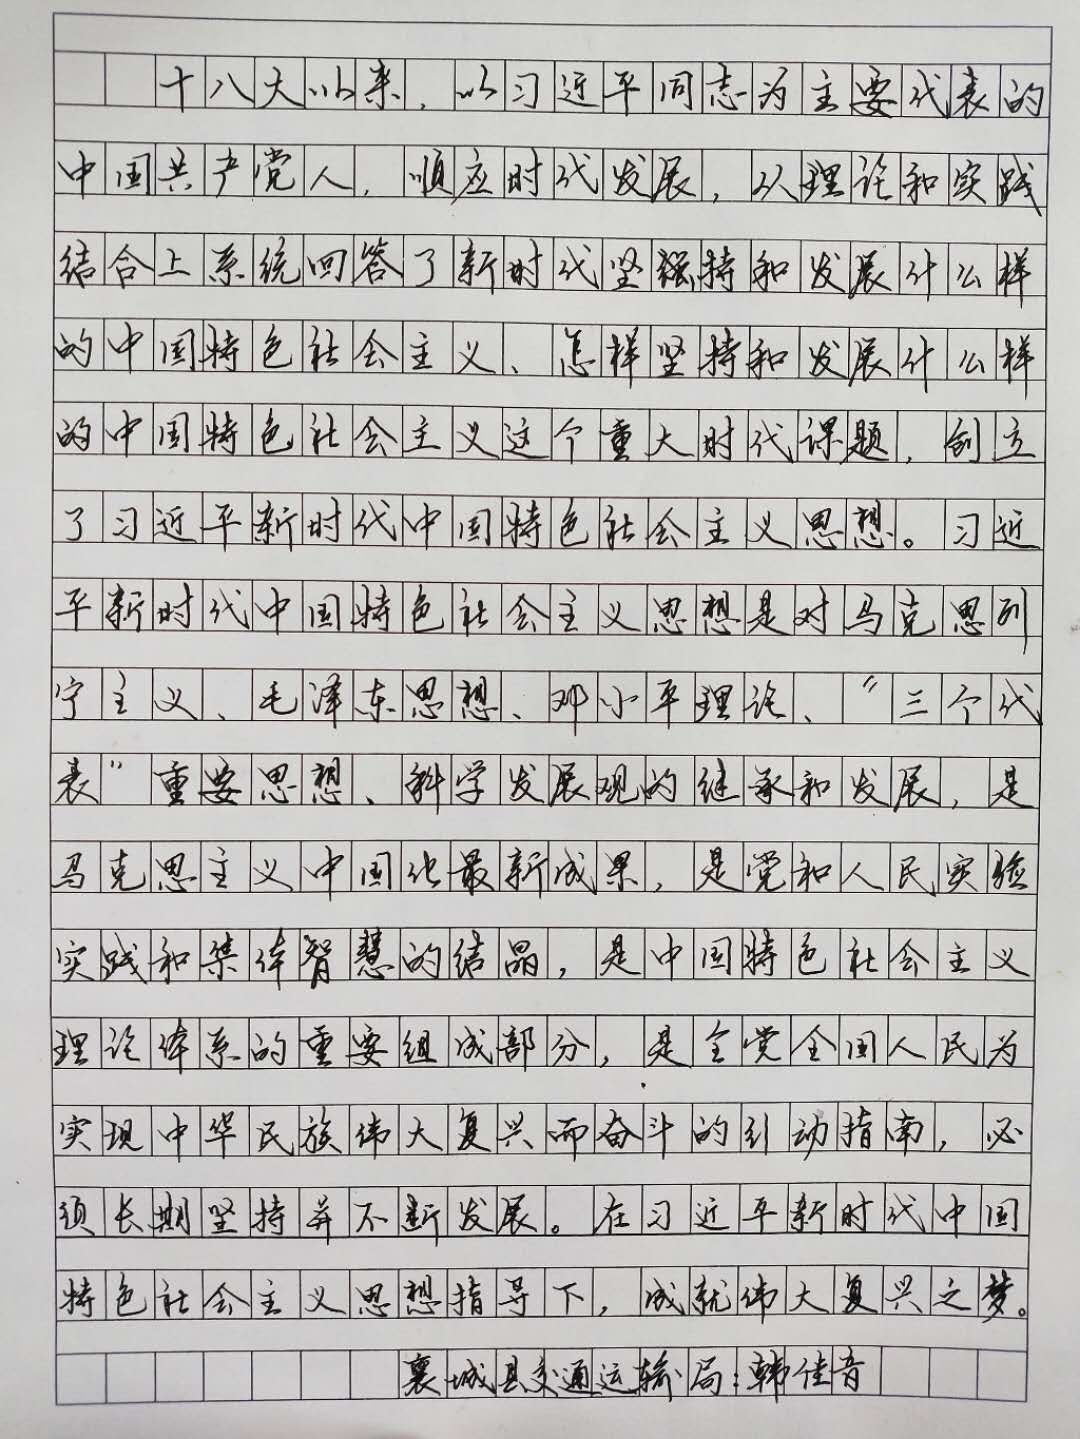 十八大以来，以习近平同志为主要代表的
中国共产党人，顺应时代发展，从理论和实践
结合上系统回答了新时代坚强持和发展什么样
的中国特色社会主义、怎样坚持和发展什么样
的中国特色社会主义这个重大时代课题，创立
了习近平新时代中国特色社会主义思想。习近
平新时代中国特色社会主义思想是对马克思列
宁主义、毛泽东思想、邓小平理论、“三个代
表”重要思想、科学发展观的继承和发展，是
马克思主义中国化最新成果，是党和人民实验
实践和集体智慧的结晶，是中国特色社会主义
理论体系的重要组成部分，是全党全国人民为
实现中华民族伟大复兴而奋斗的引动指南，必
须长期坚持并不断发展。在习近平新时代中国
特色社会主义思想指导下，成就伟大复兴之梦。
襄城县交通运输局：韩佳音